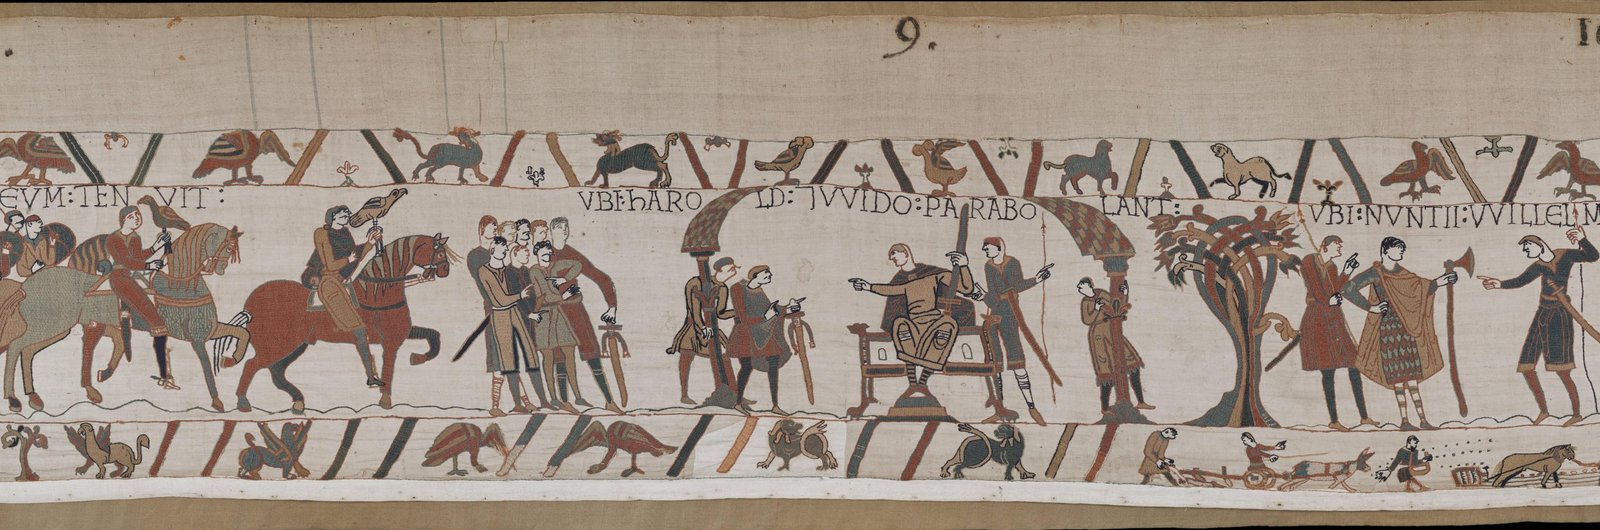 9.
EVM : TENVIT :
VBI : hARO LD : ⁊ VVIDO : PARABO LANT :
VBI : NVNTII : VVILLELM